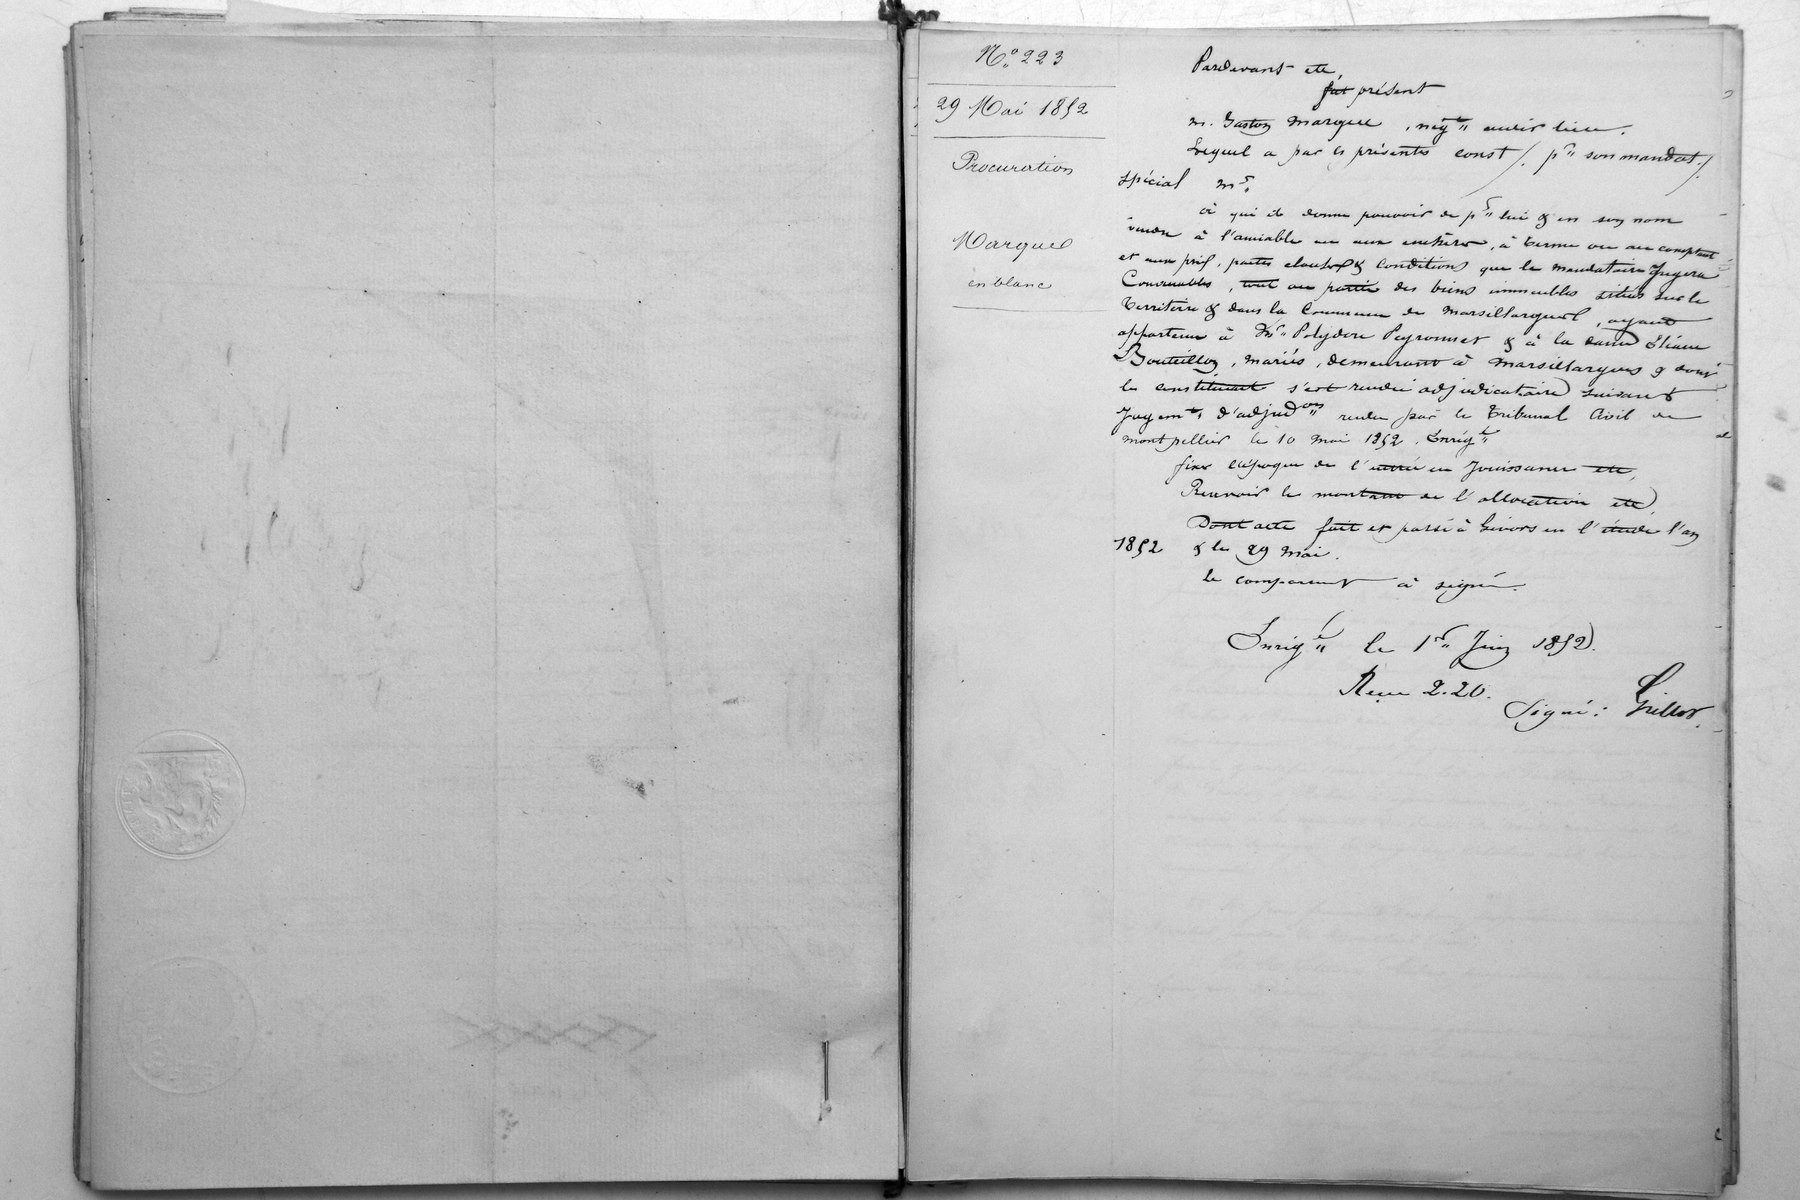 N.º 223
29 Mai 1852
Procuration
Marquel
en blanc
Pardevant etc,
fut présent
M. Gaston Marquel, nég.t lieu.
Lequel a par ces présentes const/. p.r son mandat./
spécial M.r
à qui il donne pouvoir de p.r lui & en son nom
vendre à l'amiable ou aux enchères, à terme ou au comptant
et aux prix, pactes clauses & conditions que le mandataire Jugera
Convenables, tout ou partie des biens immeubles situés sur le
territoire & dans la Commune de Marsillargues, ayant
appartenu à M.r Polydore Peyronnet & à la dame Eliane
Bouteillon, mariés, demeurant à Marsillargues & dont
le constituant s'est rendu adjudicataire suivant
Jugem.t d'adjud.on rendu par le tribunal Civil de
Montpellier le 10 mai 1852. Enrig.té
fixer l'époque de l'entrée en Jouissance etc,
Recevoir le montant de l'allocation etc,
Dont acte fait et passé à Givors en l'étude l'an
1852 & le 29 Mai.
le comparant a signé.
Enrig.té le 1.er Juin 1852.
Reçu 2.20.
Signé: Grillot.